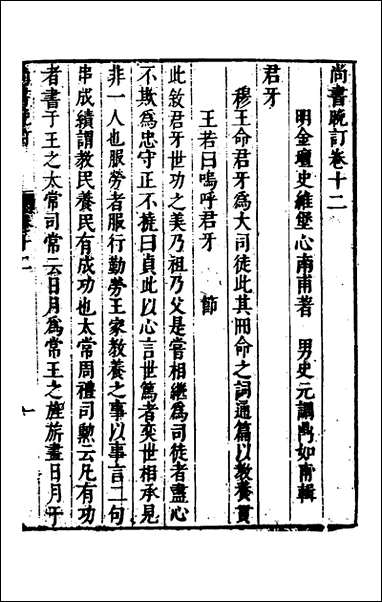 尚書晚訂卷十二
明金壇史維堡心南甫著　男史元調鼎如甫輯
君牙
穆王命君牙爲大司徒此其冊命之詞通篇以教養貫
王若曰嗚呼君牙　節
此敘君牙世功之美乃祖乃父是嘗相繼爲司徒者盡心
不欺爲忠守正不撓曰貞此以心言世篤者奕世相承見
非一人也服勞者服行勤勞王家教養之事以事言二句
串成績謂教民養民有成功也太常周禮司勲云凡有功
者書于王之太常司常云日月爲常王之旌旂畫日月于